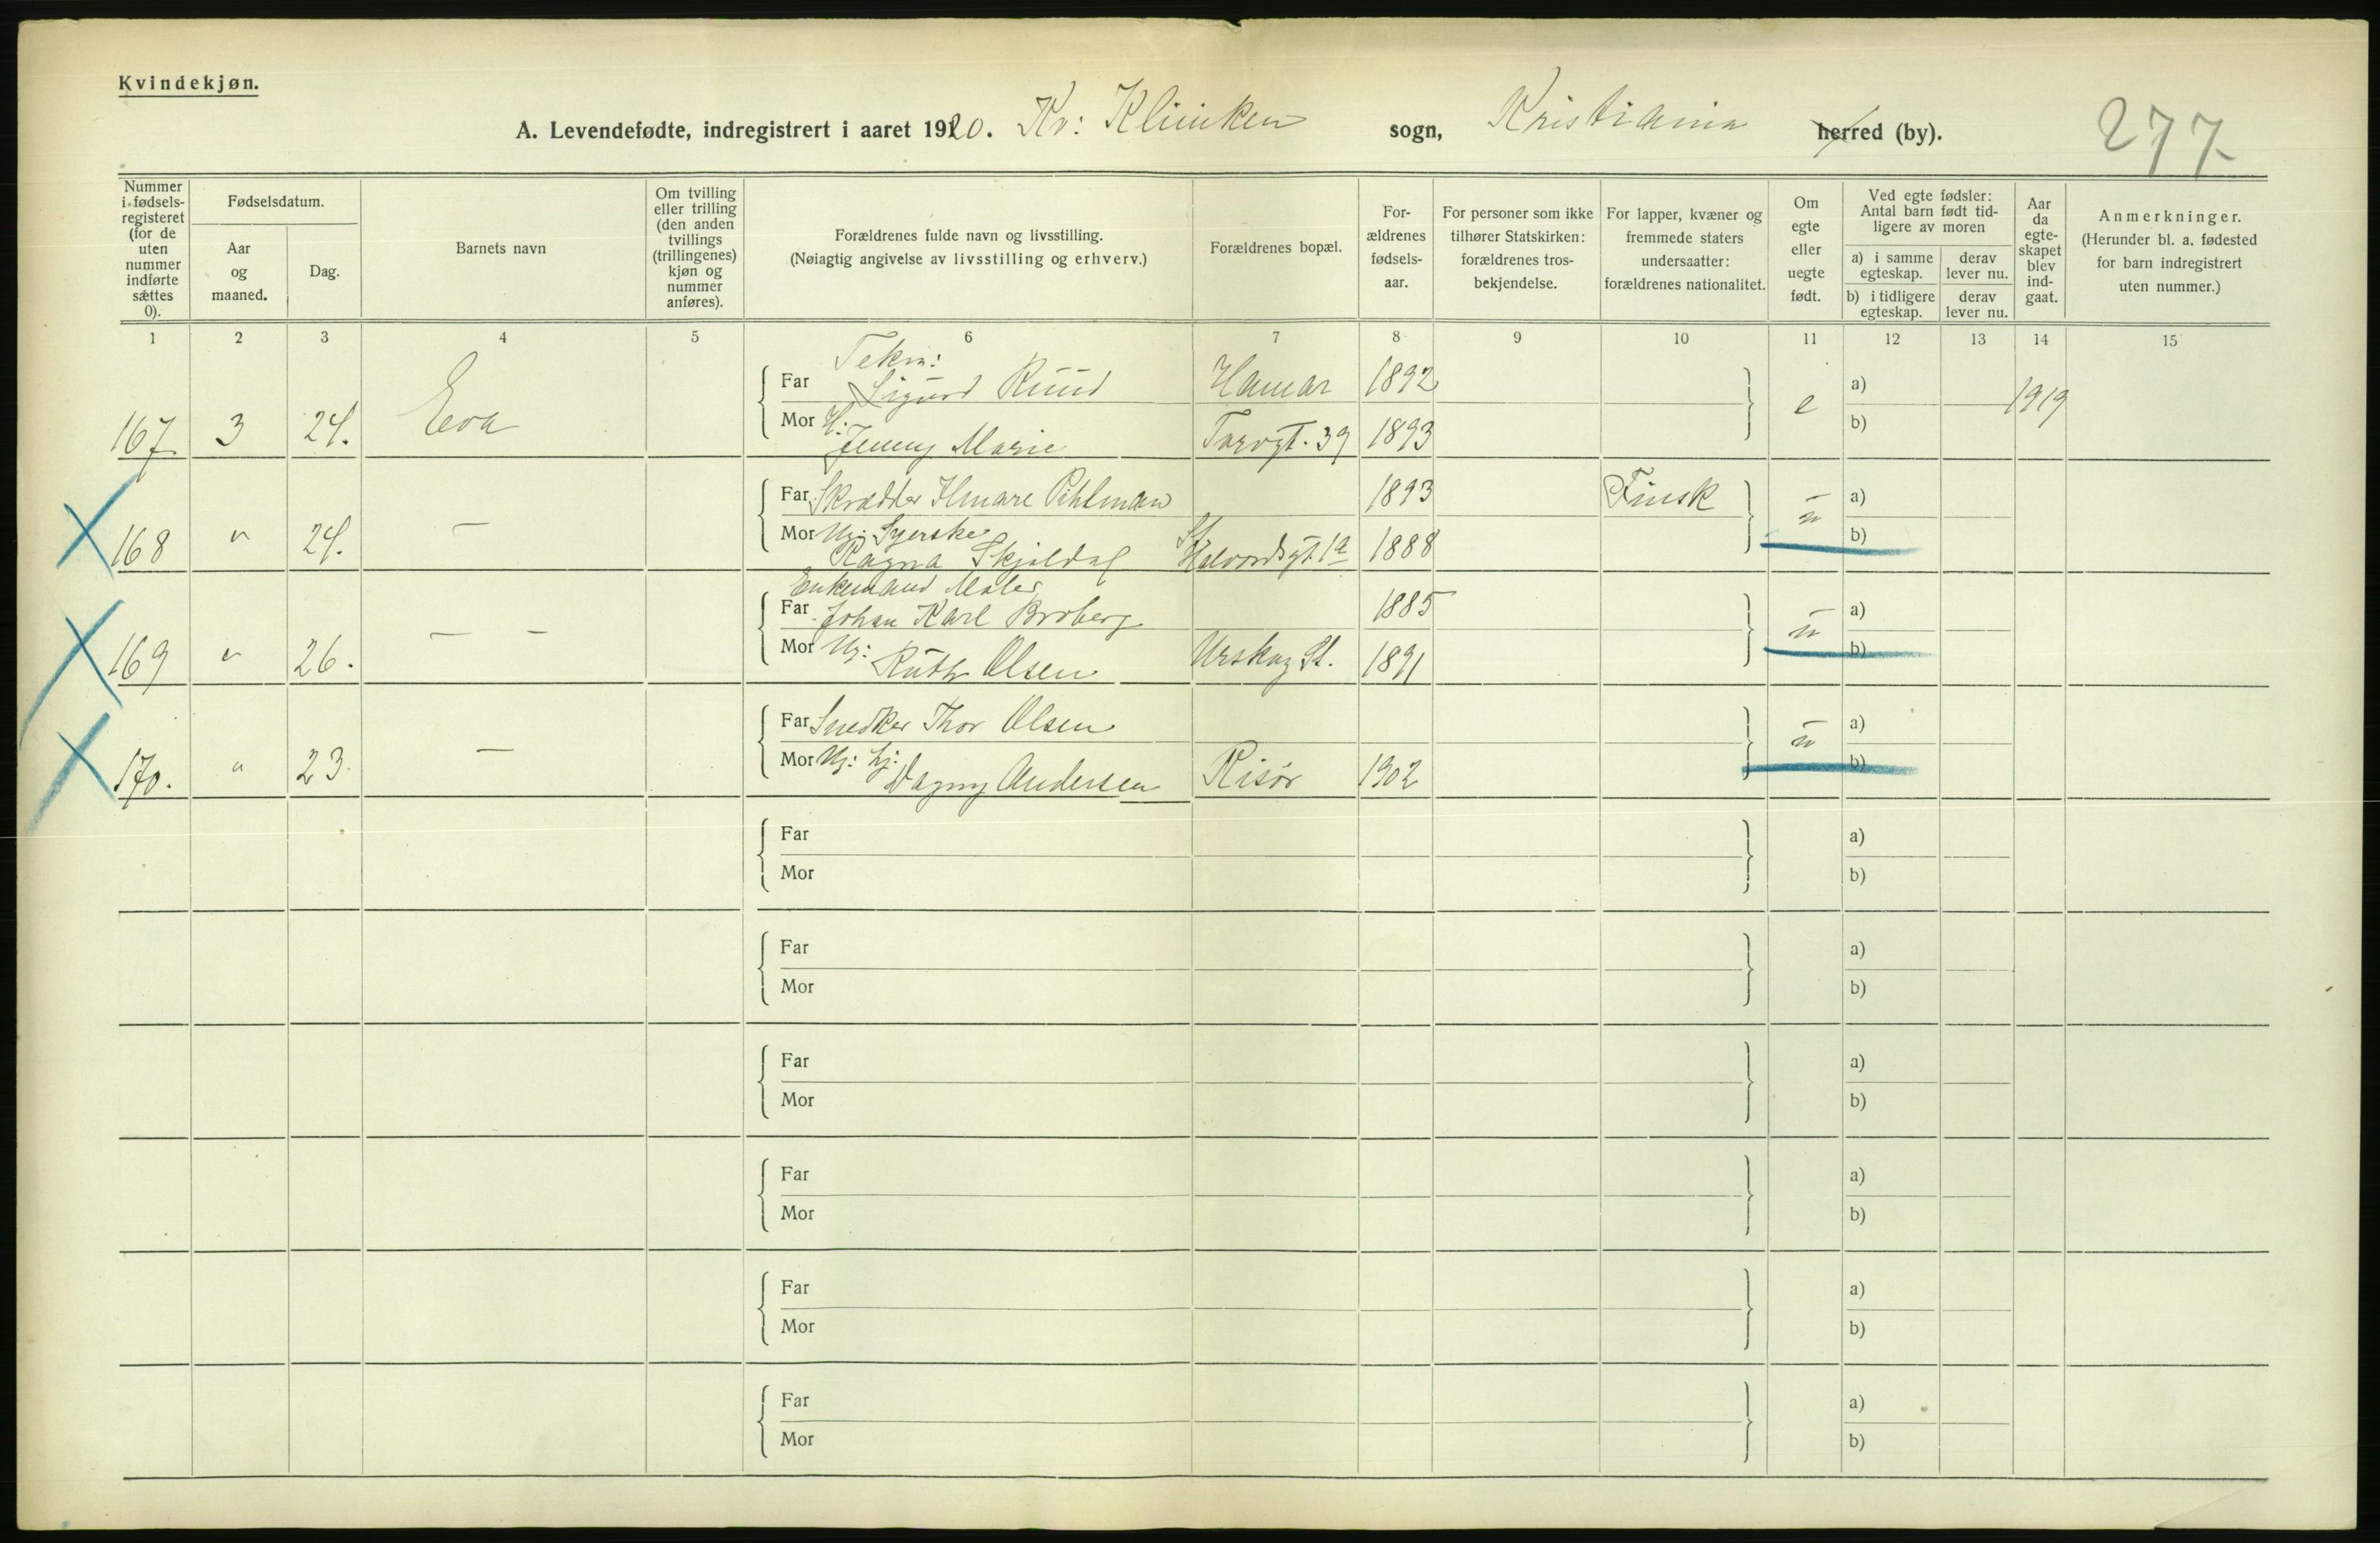 Kvindekjøn.
A. Levendefødte, indregistrert i aaret 1920. Kv: Kliniken sogn, Kristiania herred (by). 277
Nummer i fødselsregisteret (for de uten nummer indførte sættes 0).
Fødselsdatum.
Aar og maaned.
Dag.
Barnets navn
Om tvilling eller trilling (den anden tvillings (trillingenes) kjøn og nummer anføres).
Forældrenes fulde navn og livsstilling.
(Nøiagtig angivelse av livsstilling og erhverv.)
Forældrenes bopæl.
For-ældrenes fødsels-aar.
For personer som ikke tilhører Statskirken: forældrenes tros-bekjendelse.
For lapper, kvæner og fremmede staters undersaatter: forældrenes nationalitet.
Om egte eller uegte født.
Ved egte fødsler: Antal barn født tid-ligere av moren
a) i samme egteskap.
derav lever nu.
b) i tidligere egteskap.
derav lever nu.
Aar da egte-skapet blev ind-gaat.
Anmerkninger.
(Herunder bl. a. fødested for barn indregistrert uten nummer.)
1 2 3 4 5 6 7 8 9 10 11 12 13 14 15
Tekn:
Far Sigurd Ruud Hamar 1892 a)
167 3 24. Eva e 1919
Mor H: Jenny Marie Torvgt. 39 1893 b)
Far Skrædder Ilmare Pihlman 1893 Finsk a)
168 " 24. — u
Mor Ug: Syerske
Ragna Skjoldal St. Halvordsgt. 1a 1888 b)
Enkemand Maler
Far Johan Karl Broberg 1885 a)
169 " 26. — — u
Mor Ug: Ruth Olsen Urskog St. 1891 b)
Far Snedker Thor Olsen a)
170. " 23. — u
Mor Ug: Tj: Dagny Andersen Risør 1902 b)
Far a)
Mor b)
Far a)
Mor b)
Far a)
Mor b)
Far a)
Mor b)
Far a)
Mor b)
Far a)
Mor b)